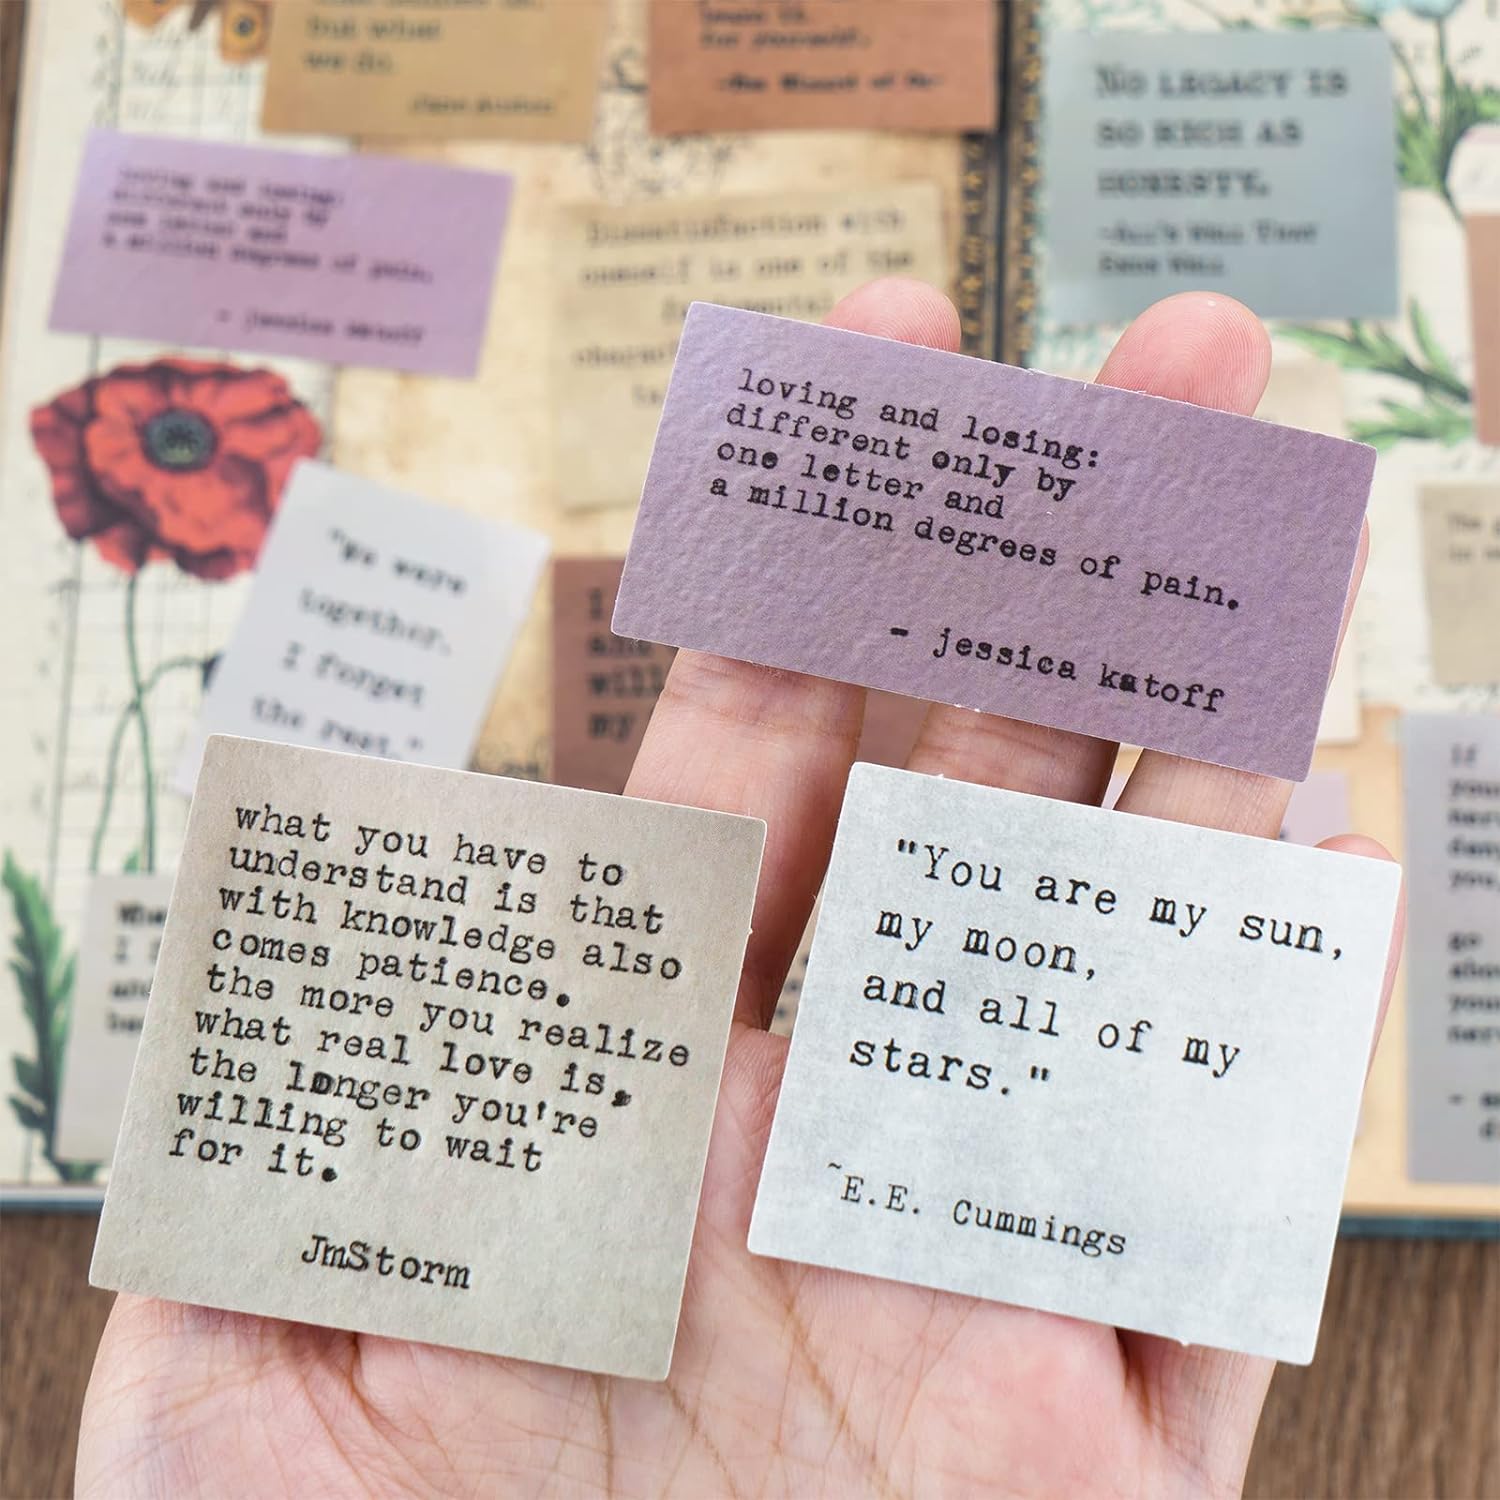 but what
we do.
Jane Austen
for yourself.
~The Wizard of Oz~
NO LEGACY IS
SO RICH AS
HONESTY.
~ALL'S WELL THAT
ENDS WELL
loving and losing:
different only by
one letter and
a million degrees of pain.
- jessica katoff
Dissatisfaction with
oneself is one of the
fundamental
loving and losing:
different only by
one letter and
a million degrees of pain.
- jessica katoff
"We were
together.
I forget
the rest."
I
and
will
my
what you have to
understand is that
with knowledge also
comes patience.
the more you realize
what real love is,
the longer you're
willing to wait
for it.
JmStorm
"You are my sun,
my moon,
and all of my
stars."
~E.E. Cummings
If
you
go